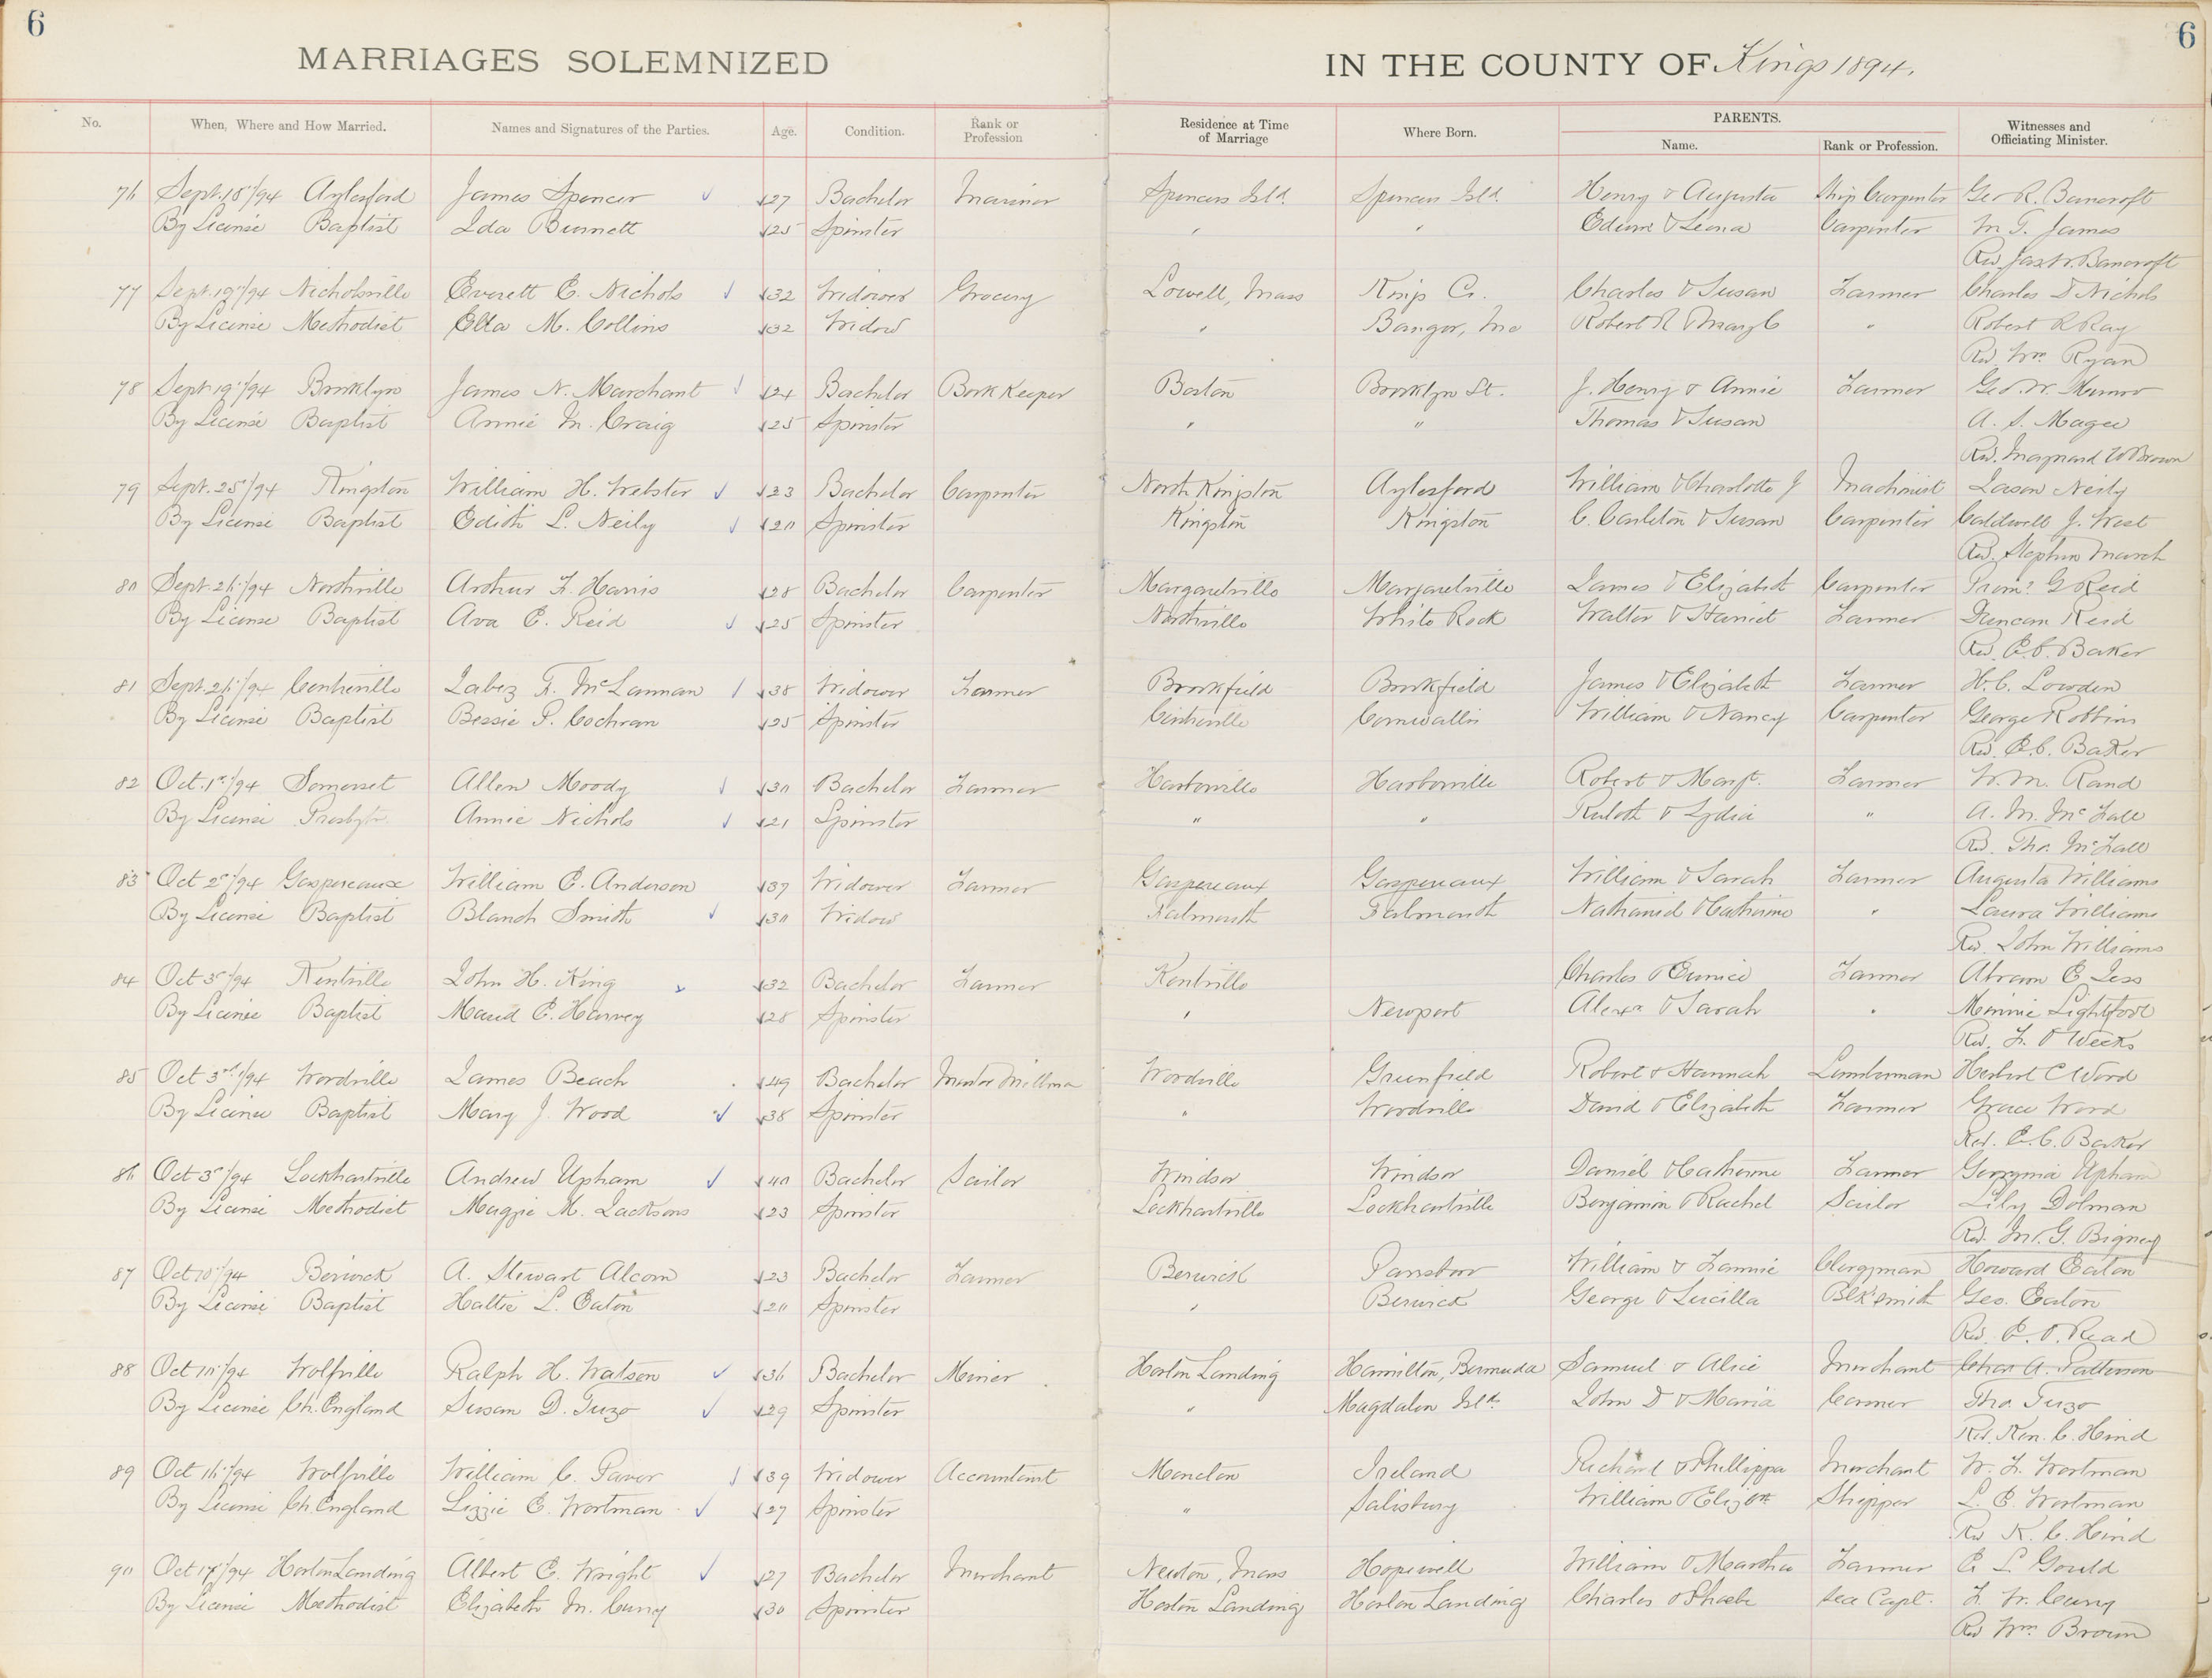 6
6
MARRIAGES SOLEMNIZED IN THE COUNTY OF Kings 1894.
No. When, Where and How Married. Names and Signatures of the Parties. Age. Condition. Rank or Profession Residence at Time of Marriage Where Born. PARENTS. Name. Rank or Profession. Witnesses and Officiating Minister.
76 Sept. 18/94 Aylesford James Spencer 27 Bachelor Mariner Spencers Isld. Spencers Isld. Henry & Augusta Ship Carpenter Geo R. Bancroft
By License Baptist Ida Bennett 25 Spinster " " & Leona Carpenter M T. James
Rev Jas W. Bancroft
77 Sept. 19/94 Nicholsville Everett E. Nichols 32 Widower Grocery Lowell, Mass Kings Co. Charles & Susan Farmer Charles D Nichols
By License Methodist Ella M. Collins 32 Widow " Bangor, Me Robert R & Mary C " Robert R Ray
Rev Wm Ryan
78 Sept 19/94 Brooklyn James N. Marchant 24 Bachelor Book Keeper Boston Brooklyn St. J. Henry & Annie Farmer Geo. W. Munro
By License Baptist Annie M. Craig 25 Spinster " " Thomas & Susan A. S. Magee
Rev. Maynard W Brown
79 Sept. 25/94 Kingston William H. Webster 23 Bachelor Carpenter North Kingston Aylesford William & Charlotte J Machinist Jason Neily
By License Baptist Edith L. Neily 20 Spinster Kingston Kingston C. Carleton & Susan Carpenter Caldwell J. West
Rev. Stephen March
80 Sept. 26/94 Northville Arthur F. Harris 28 Bachelor Carpenter Margaretville Margaretville James & Elizabeth Carpenter G Reid
By License Baptist Ava E. Reid 25 Spinster Northville White Rock Walter & Harriet Farmer Duncan Reid
Rev. E. C. Baker
81 Sept. 26/94 Centreville Jabez F. McLannan 38 Widower Farmer Brookfield Brookfield James & Elizabeth Farmer H. C. Lowden
By License Baptist Bessie P. Cochran 25 Spinster Centreville Cornwallis William & Nancy Carpenter George Robbins
Rev. E. C. Baker
82 Oct. 1st/94 Somerset Allen Moody 30 Bachelor Farmer Harborville Harborville Robert & Margt. Farmer W. M. Rand
By License Presbytr. Annie Nichols 21 Spinster " " & Lydia " A. M. McFall
Rev. Tho. McFall
83 Oct 2/94 Gaspereaux William E. Anderson 37 Widower Farmer Gaspereaux Gaspereaux William & Sarah Farmer Augusta Williams
By License Baptist Blanch Smith 30 Widow Falmouth Falmouth Nathaniel & Catherine " Laura Williams
Rev. John Williams
84 Oct 3/94 Kentville John H. King 32 Bachelor Farmer Kentville Charles & Eunice Farmer Abram E Jess
By License Baptist Maud E. Harvey 28 Spinster " Newport Alexr & Sarah " Minnie Lightfoot
Rev. F. O Weeks
85 Oct 3rd/94 Woodville James Beach 49 Bachelor Master Millman Woodville Greenfield Robert & Hannah Lumberman Herbert C Wood
By License Baptist Mary J. Wood 38 Spinster " Woodville David & Elizabeth Farmer Grace Wood
Rev. E. C. Baker
86 Oct 3/94 Lockhartville Andrew Upham 40 Bachelor Sailor Windsor Windsor Daniel & Catherine Farmer Upham
By License Methodist Maggie M. Jacksons 23 Spinster Lockhartville Lockhartville Benjamin & Rachel Sailor Lily Dolman
Rev. G. Bigney
87 Oct 10/94 Berwick A. Stewart Alcorn 23 Bachelor Farmer Berwick Parrsboro William & Fannie Clergyman Howard Eaton
By License Baptist Hattie L. Eaton 20 Spinster " Berwick George & Lucilla Blk'smith Geo. Eaton
Rev. E. O. Read
88 Oct 10/94 Wolfville Ralph H. Watson 36 Bachelor Miner Horton Landing Hamilton, Bermuda Samuel & Alice Merchant Chas A. Patterson
By License Ch. England Susan D. Tuzo 29 Spinster " Magdalen Isld. John D & Maria Tho. Tuzo
Rev. Ken. C. Hind
89 Oct 16/94 Wolfville William C. Paver 39 Widower Accountant Moncton Ireland Richard & Phillippa Merchant W. F. Wortman
By License Ch. England Lizzie E. Wortman 27 Spinster " Salisbury William & Elizth Shipper L. E. Wortman
Rev K. C. Hind
90 Oct 17/94 Horton Landing Albert E. Wright 27 Bachelor Merchant Newton, Mass Hopewell William & Martha Farmer E L Gould
By License Methodist Elizabeth M. Curry 30 Spinster Horton Landing Horton Landing Charles & Phoebe Sea Capt. F. W. Curry
Rev Wm. Brown